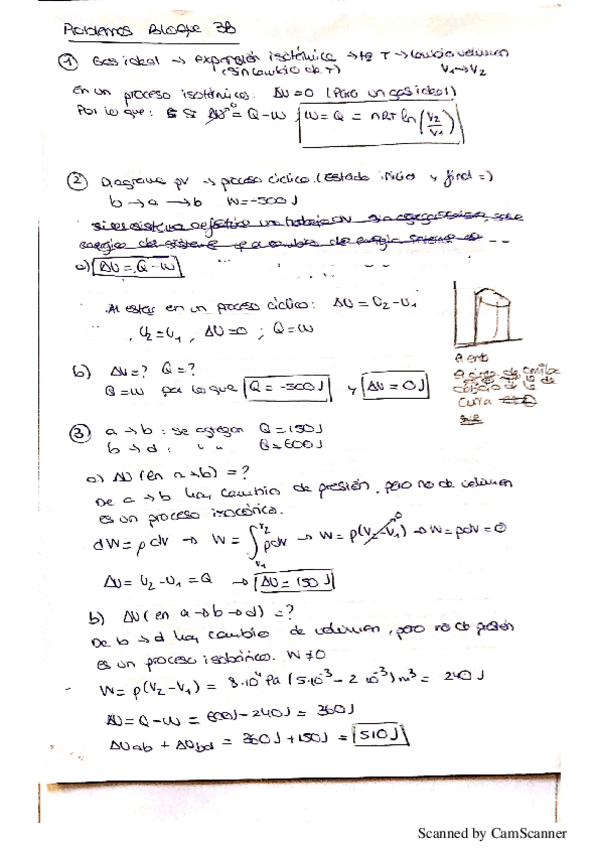 Problemas Bloque 3B
① Gas ideal → expansión isotérmica → tq T → cambia volumen
(sin cambio de T) V₁→V₂
En un proceso isotérmico: ΔU=0 (Para un gas ideal)
Por lo que: ΔU=⁰ = Q-W, W = Q = nRT ln(V₂/V₁)
② Diagrama pV → proceso cíclico. (Estado inicial y final =)
b → a → b W=-500J
a) ΔU = Q - W
Al estar en un proceso cíclico: ΔU = U₂ - U₁
U₂=U₁, ΔU=0; Q=W
b) ΔU=? Q=?
Q=W por lo que Q = -500J y ΔU = 0J
③ a → b: se agregan Q=150J
b → d: " " Q=600J
a) ΔU (en a→b) = ?
De a → b hay cambio de presión, pero no de volumen
es un proceso isocórico.
dW = p dV → W = ∫ pdV → W = p(V₂-V₁)⁰ → W = pdV = 0
V₂
V₁
ΔU = U₂-U₁ = Q → ΔU = 150J
b) ΔU (en a→b→d) = ?
De b→d hay cambio de volumen, pero no de presión
es un proceso isobárico. W≠0
W = p(V₂-V₁) = 8·10⁴ Pa (5·10⁻³ - 2·10⁻³) m³ = 240J
ΔU = Q-W = 600J-240J = 360J
ΔUab + ΔUbd = 360J + 150J = 510J
Scanned by CamScanner